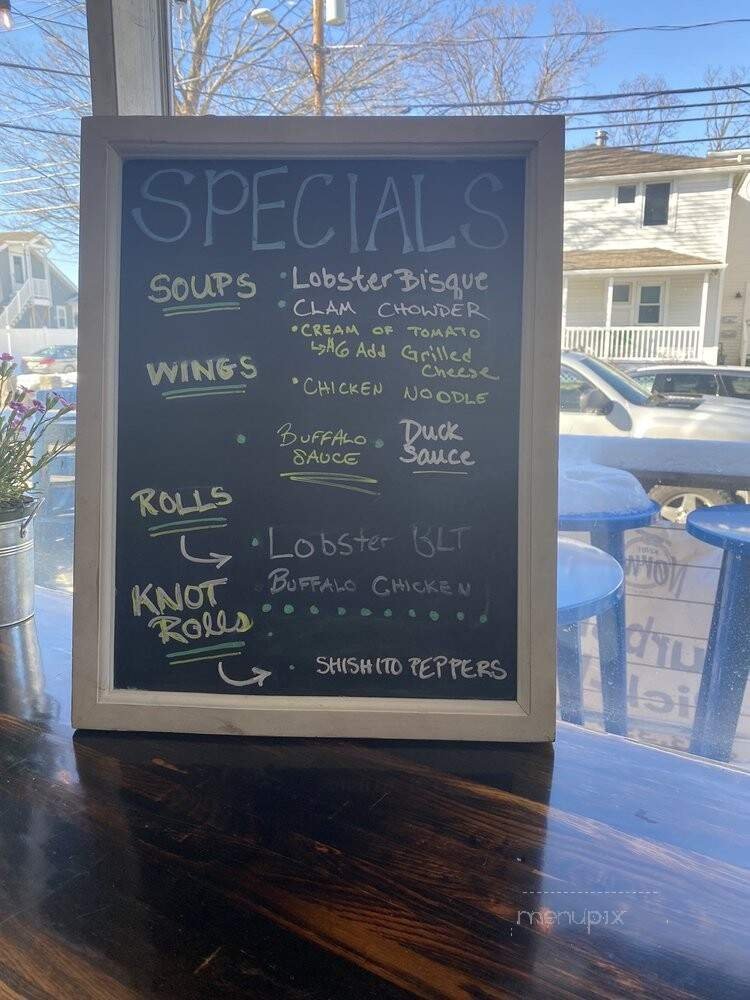 SPECIALS
SOUPS
• Lobster Bisque
• CLAM CHOWDER
• CREAM OF TOMATO
↳$6 Add Grilled Cheese
• CHICKEN NOODLE
WINGS
• BUFFALO SAUCE
• Duck Sauce
ROLLS
• Lobster BLT
BUFFALO CHICKEN
KNOT Rolls
• SHISHITO PEPPERS
menupix